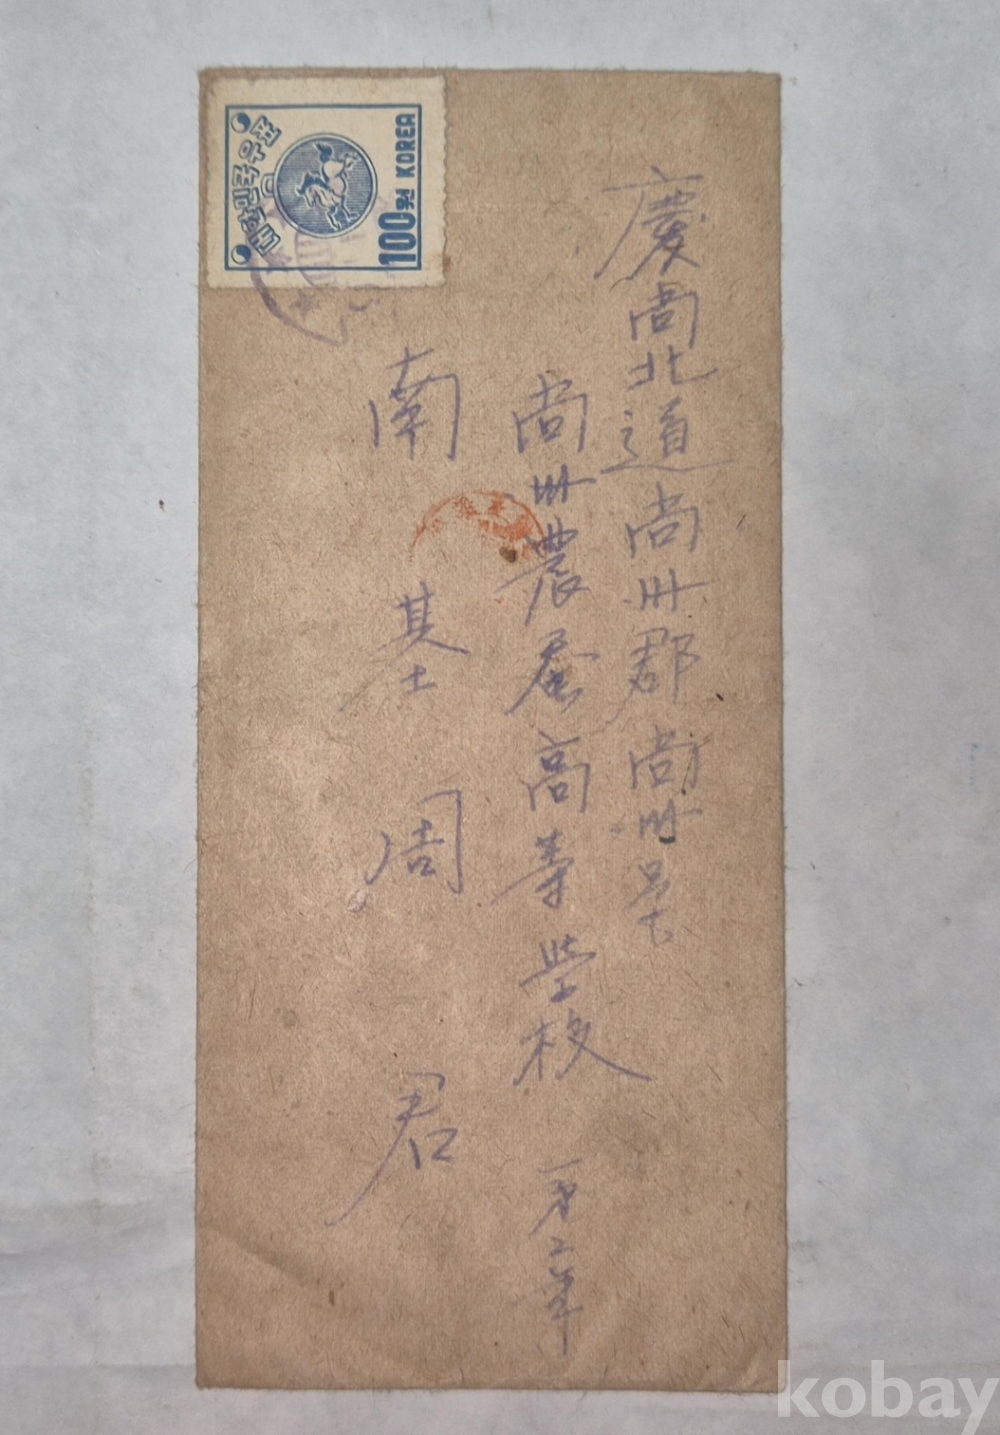 대한민국우표
100원 KOREA
慶尚北道尚州郡尚州邑
尚州農蚕高等学校
第二学年
南基周君
kobay